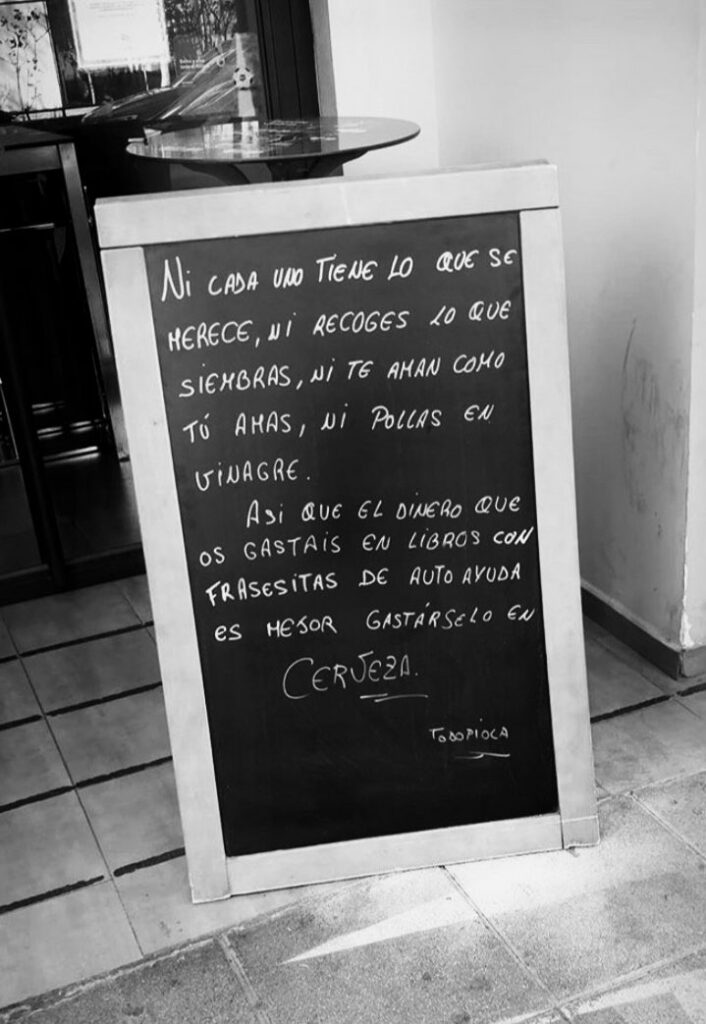 Ni CADA UNO TIENE LO QUE SE
MERECE, Ni RECOGES LO QUE
SiEMBRAS, Ni TE AMAN COMO
TÚ AMAS, Ni POLLAS EN
ViNAGRE.
ASi QUE EL DiNERO QUE
OS GASTAiS EN LiBROS CON
FRASESiTAS DE AUTO AYUDA
ES MEJOR GASTÁRSELO EN
CERVEZA.
TODOPiOCA